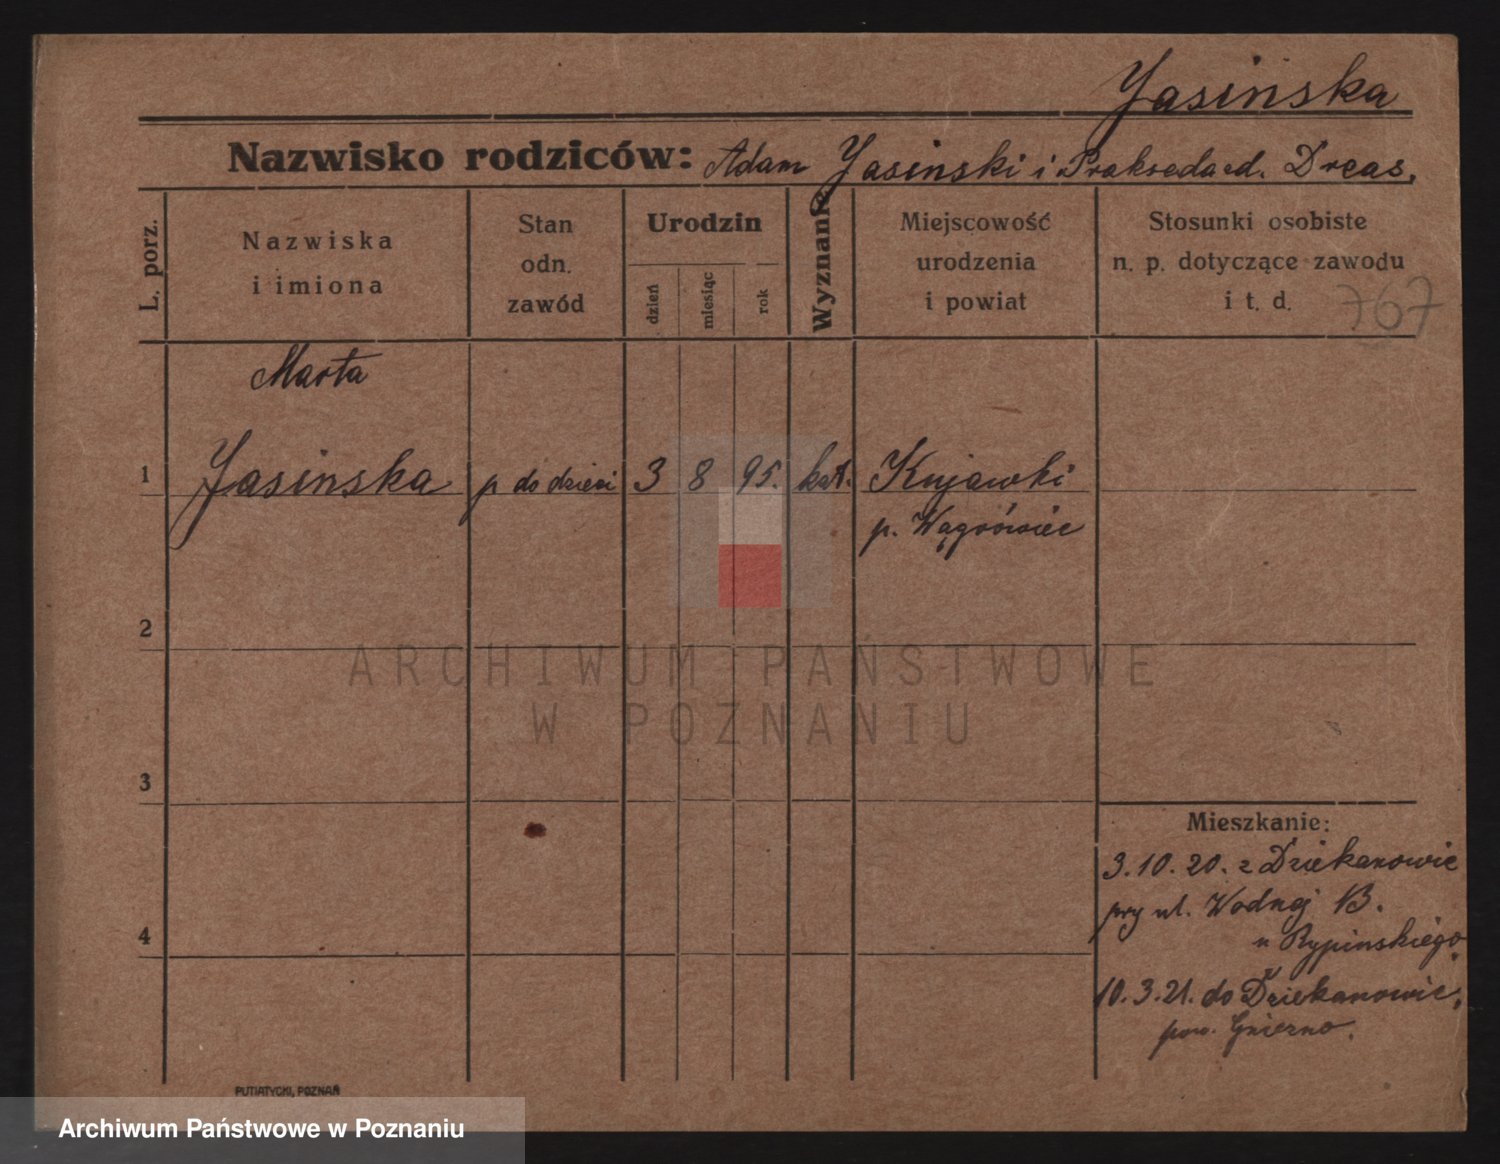 Jasinska
Nazwisko rodziców: Adam Jasinski i Prakseda d. Dreas.
L. porz.
Nazwiska
i imiona
Stan
odn.
zawód
Urodzin
dzień
miesiąc
rok
Wyznanie
Miejscowość
urodzenia
i powiat
Stosunki osobiste
n. p. dotyczące zawodu
i t. d.
767
Marta
1 Jasinska p do dzieci 3 8 95. kat. Kujawki
p. Wągrówiec
2
3
4
Mieszkanie:
3.10.20. z Dziekanowic
przy ul. Wodnej 13.
u Rypinskiego
10.3.21. do Dziekanowic,
pow. Gniezno.
PUTIATYCKI, POZNAŃ
ARCHIWUM PAŃSTWOWE
W POZNANIU
Archiwum Państwowe w Poznaniu